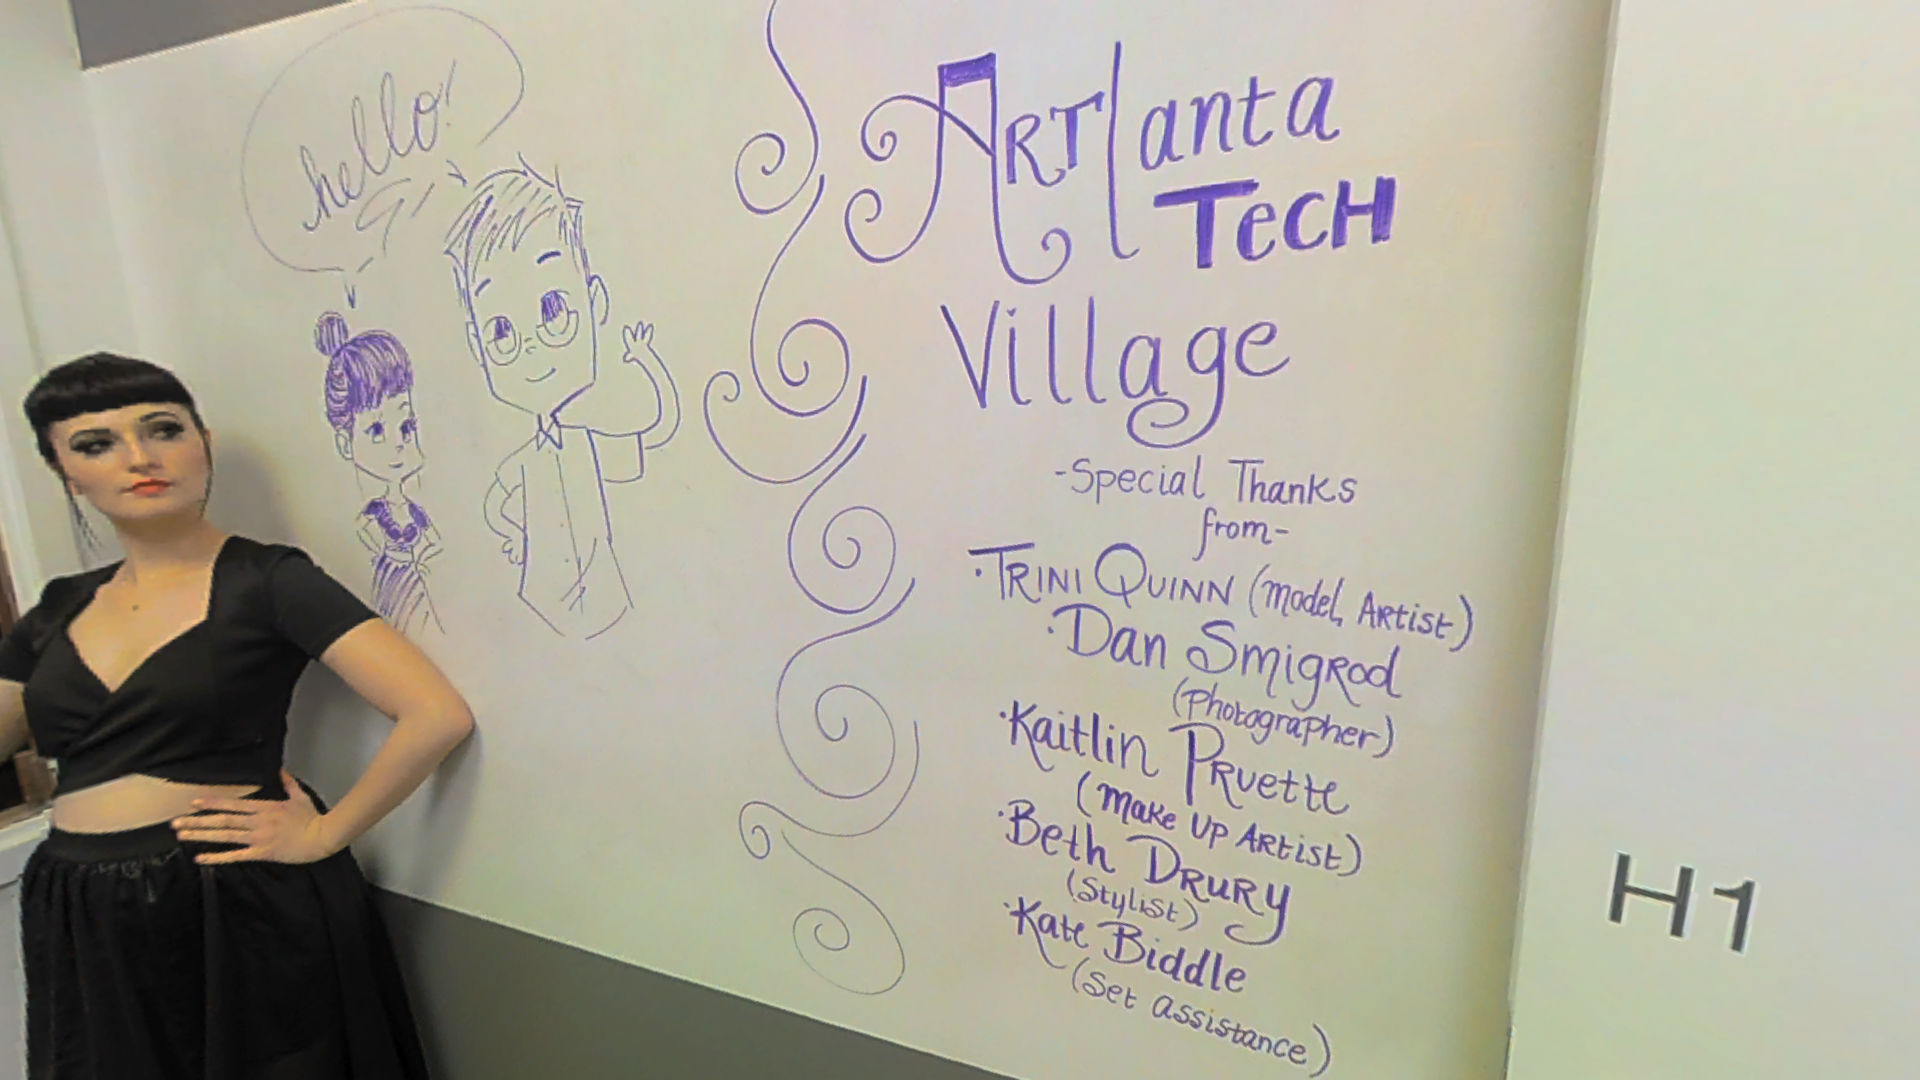 hello!
ARTlanta
TecH
Village
-Special Thanks
from-
·TRINI QUINN (Model, Artist)
·Dan SmigRod
(Photographer)
·Kaitlin PRuette
(Make Up Artist)
·Beth DRURY
(Stylist)
·Kate Biddle
(Set assistance)
H1